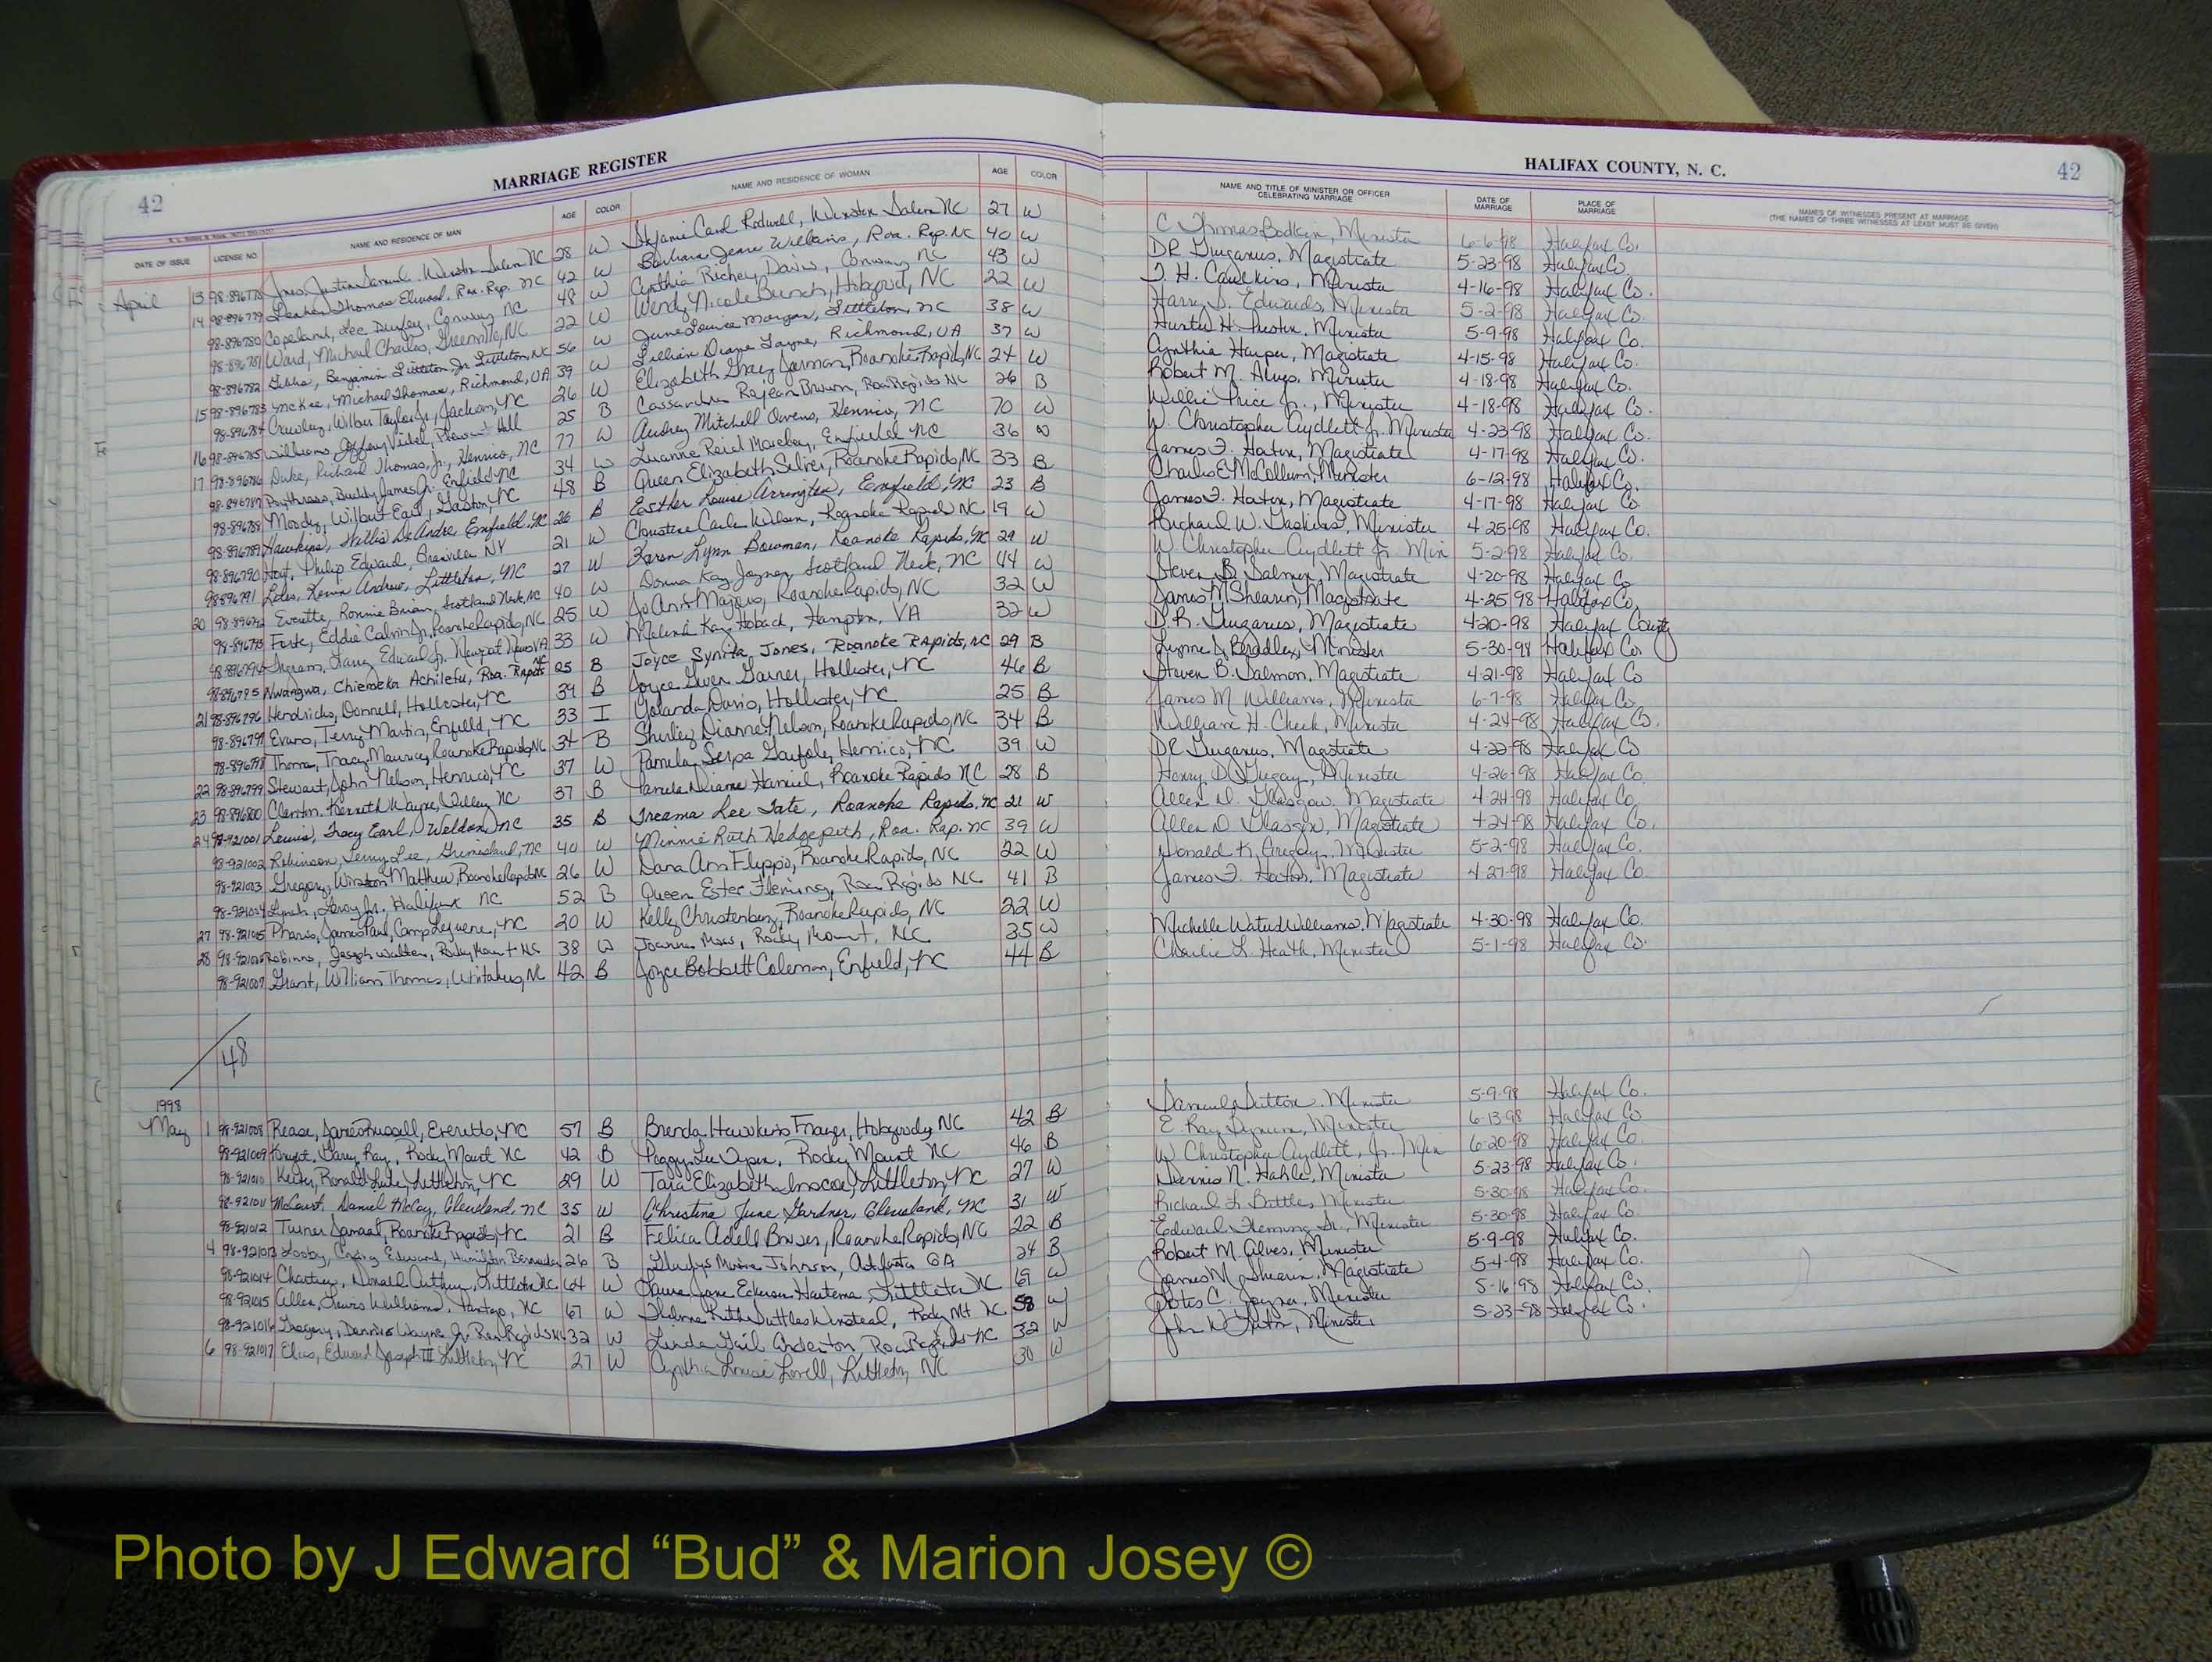 42
MARRIAGE REGISTER
HALIFAX COUNTY, N. C.
42
DATE OF ISSUE LICENSE NO. NAME AND RESIDENCE OF MAN AGE COLOR NAME AND RESIDENCE OF WOMAN AGE COLOR
NAME AND TITLE OF MINISTER OR OFFICER CELEBRATING MARRIAGE DATE OF MARRIAGE PLACE OF MARRIAGE NAMES OF WITNESSES PRESENT AT MARRIAGE
(THE NAMES OF THREE WITNESSES AT LEAST MUST BE GIVEN)
April 13 98-896778 Justin Samuel, Winston Salem NC 28 W Stefanie Carol Rodwell, Winston Salem NC 27 W C Thomas Bodkin, Minister 6-6-98 Halifax Co.
14 98-896779 Thomas Elwood, Roa. Rap. NC 42 W Barbara Jeane Williams, Roa. Rap. NC 40 W DR Gurganus, Magistrate 5-23-98 Halifax Co.
98-896780 Copeland, Lee Conway NC 48 W Cynthia Richey Davis, Conway NC 43 W Minister 4-16-98 Halifax Co.
98-896781 Ward, Michael Charles, Greenville, NC 22 W Wendy Nicole Bunch, Hobgood, NC 22 W Harry D. Edwards, Minister 5-2-98 Halifax Co.
98-896782 Benjamin Littleton Jr Littleton, NC 56 W June Louise Morgan, Littleton, NC 38 W Minister 5-9-98 Halifax Co.
15 98-896783 McKee, Michael Thomas, Richmond, VA 39 W Lillian Diane Layne, Richmond, VA 37 W Cynthia Harper, Magistrate 4-15-98 Halifax Co.
98-896784 Crawley, Wilbur Taylor Jr, Jackson, NC 26 W Elizabeth Gray Jarman, Roanoke Rapids, NC 24 W Robert M. Alves, Minister 4-18-98 Halifax Co.
16 98-896785 Williams, Jeffery Vidal, Pleasant Hill 25 B Cassandra Rajean Brown, Roa Rapids NC 26 B Willie Price Jr., Minister 4-18-98 Halifax Co.
17 98-896786 Duke, Richard Thomas, Jr., Henrico, NC 77 W Audrey Mitchell Owens, Henrico, NC 70 W W. Christopher Aydlett Jr. Minister 4-23-98 Halifax Co.
98-896787 Buddy James Jr. Enfield NC 34 W Luanne Reid Moseley, Enfield NC 36 W James F. Hatox, Magistrate 4-17-98 Halifax Co.
98-896788 Moody, Wilbur Earl, Gaston, NC 48 B Queen Elizabeth Silver, Roanoke Rapids, NC 33 B Charlie E McCollum, Minister 6-12-98 Halifax Co.
98-896789 Hawkins, Willis DeAndre Enfield NC 26 B Esther Louise Arrington, Enfield, NC 23 B James F. Hatox, Magistrate 4-17-98 Halifax Co
98-896790 Philip Edward, NY 21 W Christine Wilson, Roanoke Rapid NC 19 W Richard W. Gaskins, Minister 4-25-98 Halifax Co.
98-896791 Liles, Kevin Andrew, Littleton, NC 27 W Karen Lynn Bowman, Roanoke Rapids, NC 29 W W. Christopher Aydlett Jr. Min 5-2-98 Halifax Co.
20 98-896792 Everette, Ronnie Brian, Scotland Neck, NC 40 W Donna Kay Joyner, Scotland Neck, NC 44 W Steven B. Salmon, Magistrate 4-20-98 Halifax Co
98-896793 Eddie Calvin Jr, Roanoke Rapids, NC 25 W Jo Ann Majors, Roanoke Rapids, NC 32 W James M Shearin, Magistrate 4-25 98 Halifax Co.
98-896794 Ingram, Larry Edward Jr. Newport News VA 33 W Kay Hoback, Hampton, VA 32 W D.R. Gurganus, Magistrate 4-20-98 Halifax County
98-896795 Nwangwa, Chiemeka Achilefu, Roa. Rapids NC 25 B Joyce Synita Jones, Roanoke Rapids, NC 29 B Bradley, Minister 5-30-98 Halifax Co
21 98-896796 Hendricks, Donnell, Hollister, NC 39 B Joyce Gwen Garner, Hollister, NC 46 B Steven B. Salmon, Magistrate 4-21-98 Halifax Co
98-896797 Evans, Terry Martin, Enfield, NC 33 I Yolanda Davis, Hollister, NC 25 B James M Williams, Minister 6-7-98 Halifax Co.
98-896798 Tracy Maurice, Roanoke Rapids, NC 34 B Shirley Dianne Nelson, Roanoke Rapids, NC 34 B William H. Cheek, Minister 4-24-98 Halifax Co.
22 98-896799 Stewart, John Nelson, Henrico, NC 37 W Pamela Serpa Garofalo, Henrico, NC 39 W DR Gurganus, Magistrate 4-22-98 Halifax Co
23 98-896800 Kenneth Wayne, NC 37 B Pamela Diane Roanoke Rapids NC 28 B Minister 4-26-98 Halifax Co.
24 98-921001 Lewis, Tracy Earl, Weldon, NC 35 B Treama Lee Tate, Roanoke Rapids, NC 21 W Allen D. Glasgow, Magistrate 4-24-98 Halifax Co.
98-921002 Robinson, Jerry Lee, Grimesland, NC 40 W Minnie Ruth Hedgepeth, Roa. Rap. NC 39 W Allen D Glasgow, Magistrate 4-24-98 Halifax Co.
98-921003 Gregory, Winston Matthew, Roanoke Rapids NC 26 W Dana Ann Flippio, Roanoke Rapids, NC 22 W Donald K. Gregory, Minister 5-2-98 Halifax Co.
98-921004 Lynch, Leroy Jr. Halifax NC 52 B Queen Ester Fleming, Roa Rapids NC 41 B James F. Hatox, Magistrate 4 27-98 Halifax Co.
27 98-921005 Phares, James Paul, Camp Lejeune, NC 20 W Kelly Christenberg, Roanoke Rapids, NC 22 W
28 98-921006 Joseph Walter, Rocky Mount NC 38 W Joanna Moss, Rocky Mount, NC 35 W Michelle Waters Williams, Magistrate 4-30-98 Halifax Co.
98-921007 Grant, William Thomas, Whitakers, NC 42 B Joyce Bobbitt Coleman, Enfield, NC 44 B Charlie L. Heath, Minister 5-1-98 Halifax Co.
48
1998
May 1 98-921008 Rease, James Russell, Everetts, NC 57 B Brenda Hawkins Hobgood, NC 42 B Samuel Sutton, Minister 5-9-98 Halifax Co.
98-921009 Knight, Larry Ray, Rocky Mount NC 42 B Peggy Lee Rocky Mount NC 46 B E. Ray Minister 6-13-98 Halifax Co
98-921010 Keeter, Ronald Luke, Littleton, NC 29 W Tara Elizabeth Inscoe, Littleton, NC 27 W W Christopher Aydlett, Jr. Min 6-20-98 Halifax Co
98-921011 McCourt, Daniel McCoy, Cleveland, NC 35 W Christina June Gardner, Cleveland, NC 31 W Dennis N. Hahle, Minister 5-23-98 Halifax Co.
98-921012 Turner, Roanoke Rapids, NC 21 B Felica Adell Roanoke Rapids, NC 22 B Richard L. Battles Minister 5-30-98 Halifax Co.
4 98-921013 Edward, Hamilton Bermuda 26 B Gladys Johnson, Atlanta GA 24 B Edward Fleming Sr., Minister 5-30-98 Halifax Co
98-921014 Littleton NC 64 W Laura Jane Littleton NC 69 W Robert M. Alves, Minister 5-9-98 Halifax Co.
98-921015 Allen, Lewis Williams, Pantego, NC 67 W Rocky Mt NC 58 W James M Shearin, Magistrate 5-4-98 Halifax Co.
98-921016 Gregory, Dennis Wayne Jr. Roa Rapids NC 32 W Linda Gail Anderton, Roa Rapids NC 32 W Joyner, Minister 5-16-98 Halifax Co.
6 98-921017 Elias, Edward Joseph III Littleton, NC 27 W Cynthia Louise Lovell, Littleton, NC 30 W Minister 5-23-98 Halifax Co.
Photo by J Edward “Bud” & Marion Josey ©